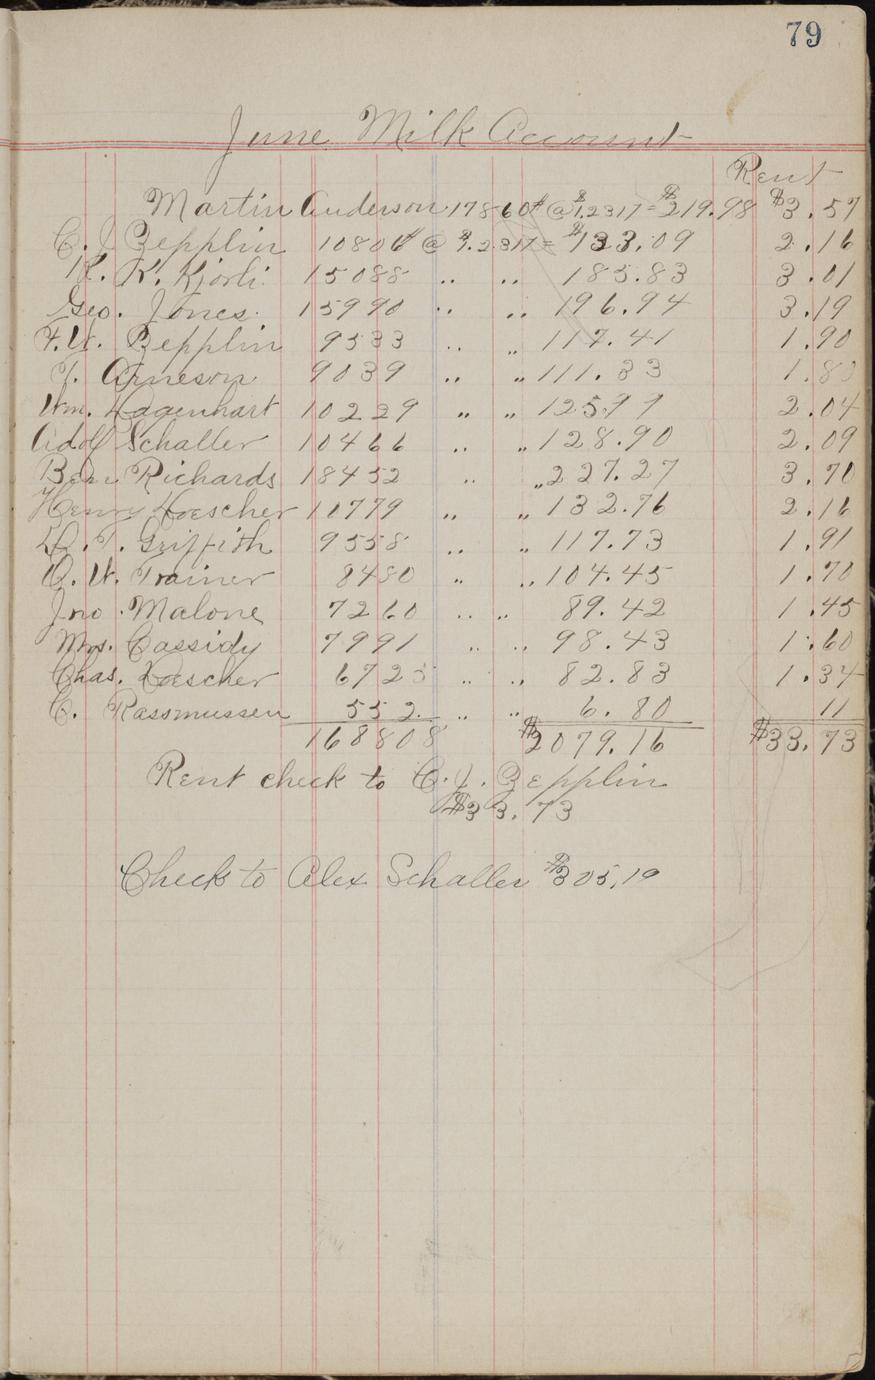 79
June Milk Account
Rent
Martin Anderson 17860# @ $1.2317 = $219.98 $3.57
C. J. Zepplin 10806# @ $1.2317 = $133.09 2.16
K. K. Kjorli 15088 .. .. 185.83 3.01
Geo. Jones 15990 .. .. 196.94 3.19
F. W. Zepplin 9533 .. .. 117.41 1.90
T. Arneson 9039 .. .. 111.33 1.80
Wm. Hagenhart 10229 .. .. 125.99 2.04
Adolf Schaller 10466 .. .. 128.90 2.09
Ben Richards 18452 .. .. 227.27 3.70
Henry Hoescher 10779 .. .. 132.76 2.16
D. T. Griffith 9558 .. .. 117.73 1.91
O. W. Trainer 8480 .. .. 104.45 1.70
Jno. Malone 7260 .. .. 89.42 1.45
Mrs. Cassidy 7991 .. .. 98.43 1.60
Chas. Hoescher 6725 .. .. 82.83 1.34
C. Rassmussen 552 .. .. 6.80 11
168808 $2079.16 $33.73
Rent check to C. J. Zepplin
$33.73
Check to Alex Schaller $305.19